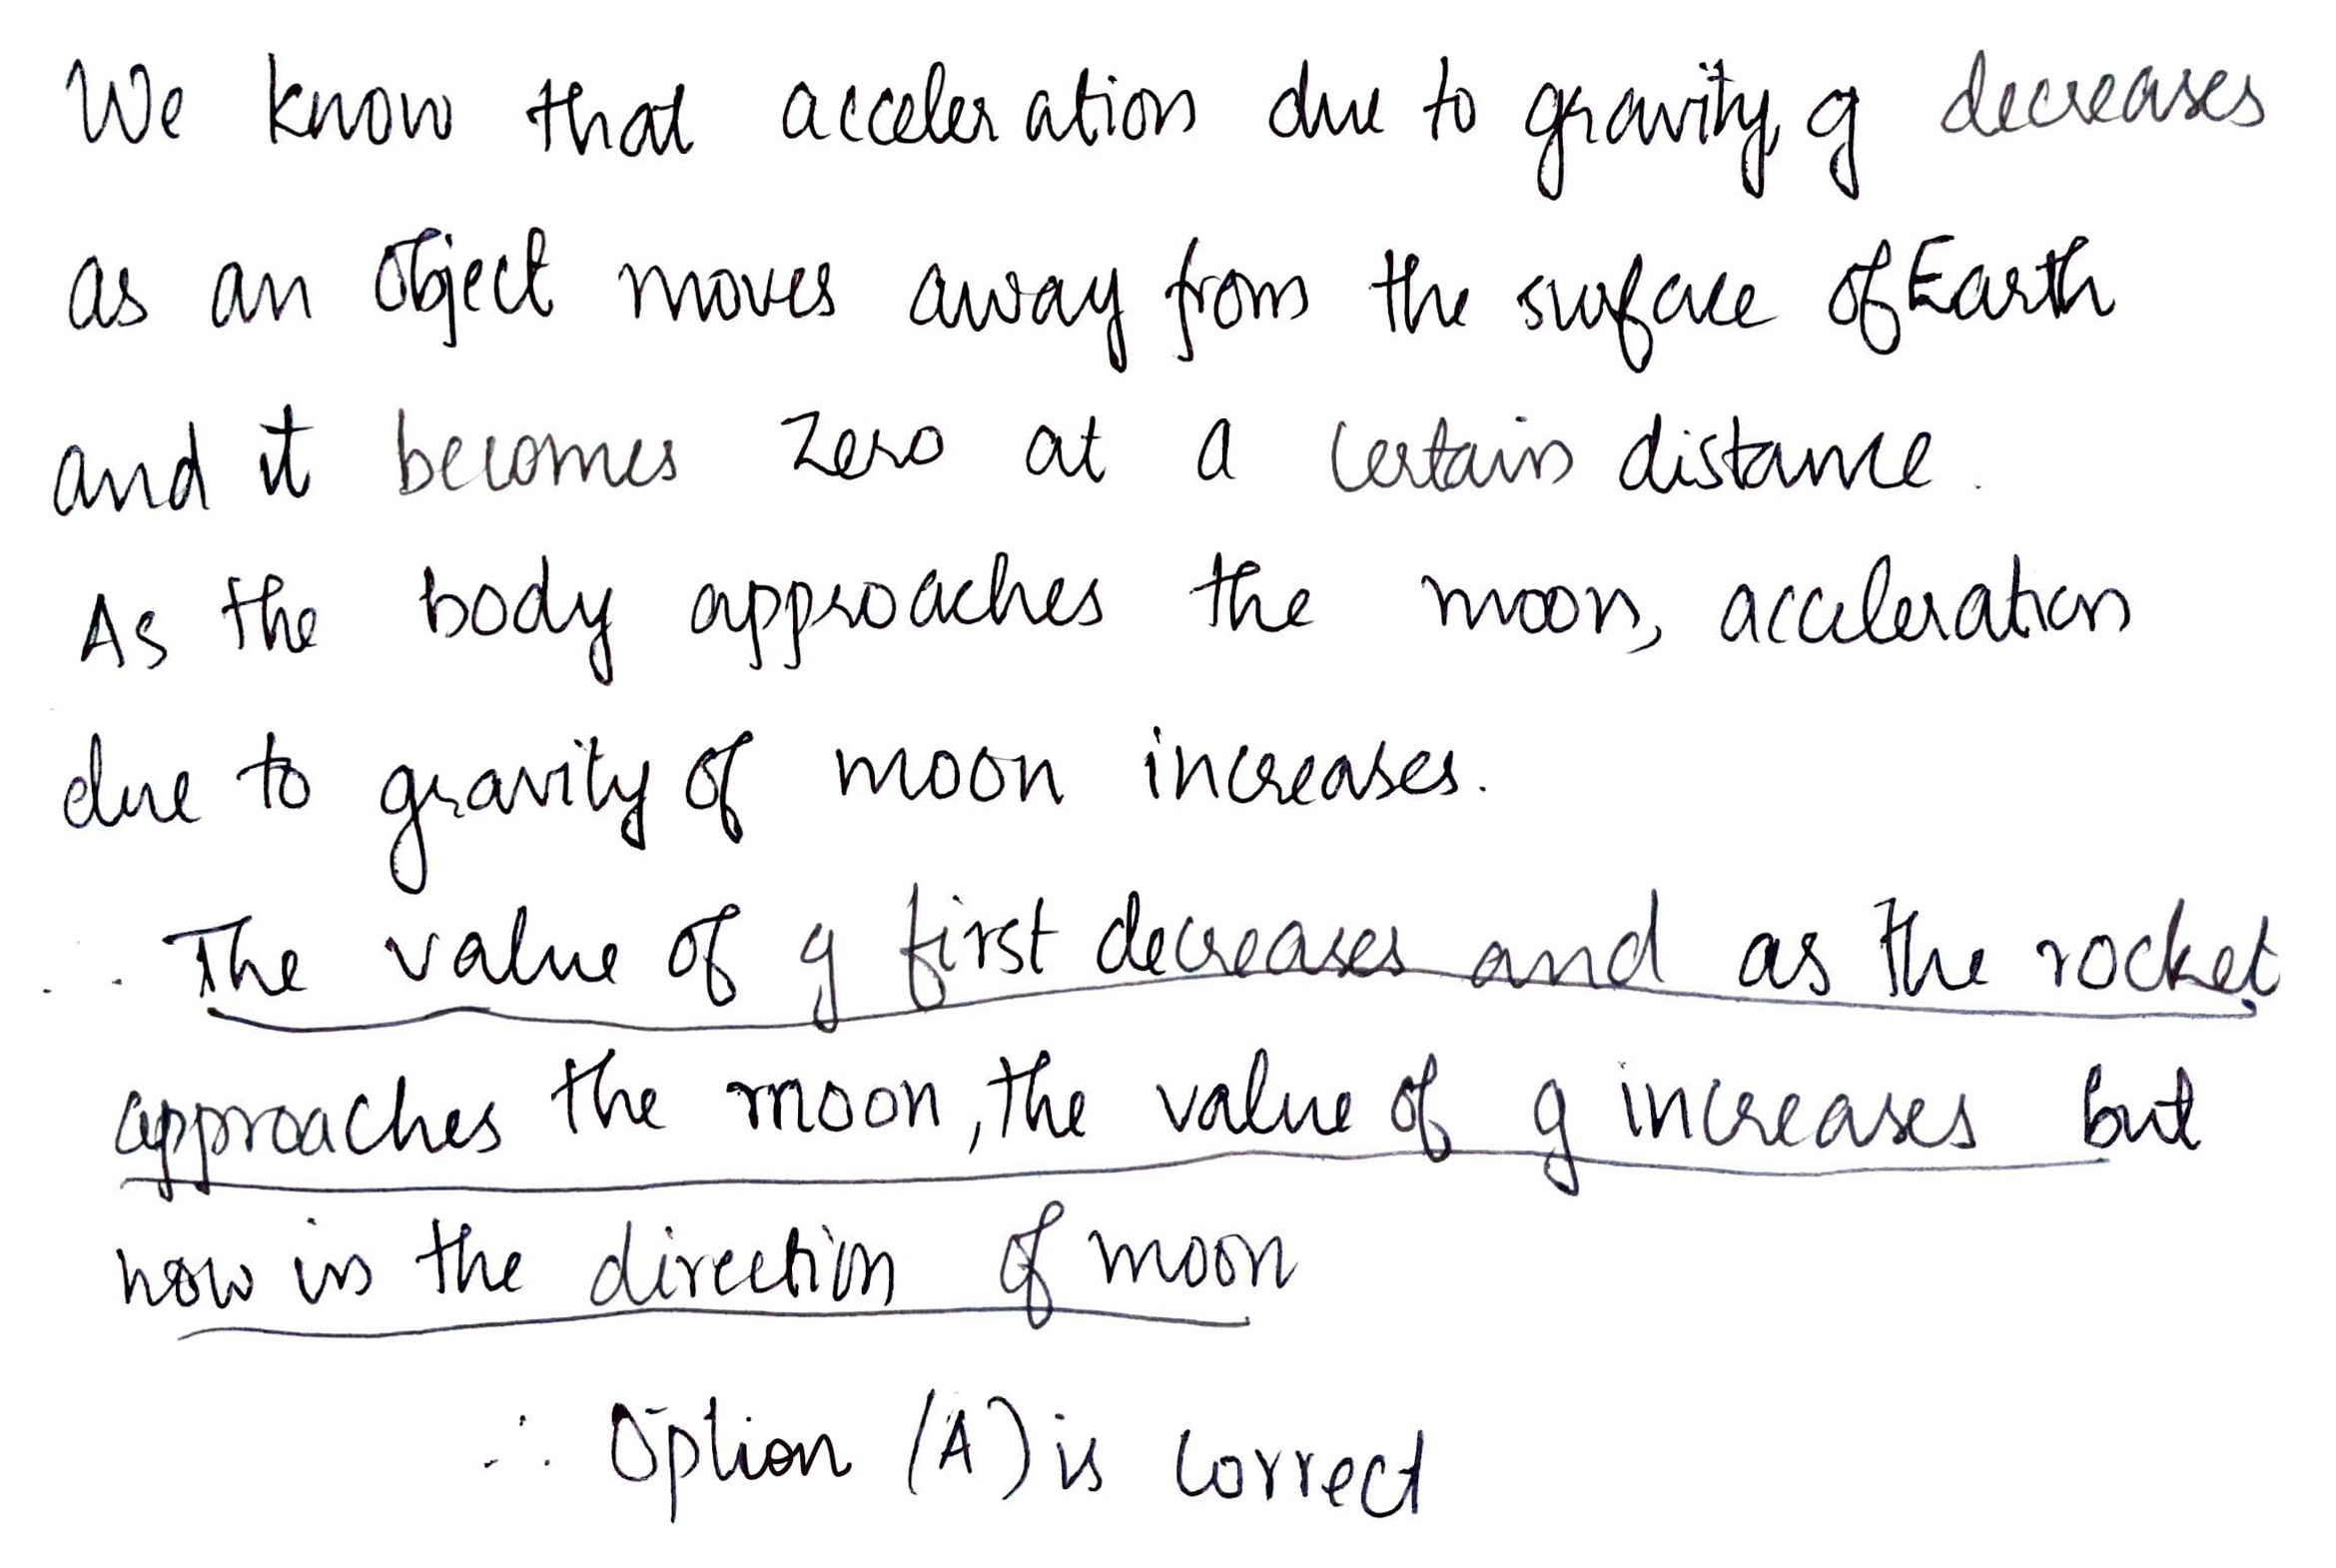 We know that acceleration due to gravity, g decreases
as an object moves away from the surface of Earth
and it becomes zero at a certain distance.
As the body approaches the moon, acceleration
due to gravity of moon increases.
∴ The value of g first decreases and as the rocket
approaches the moon, the value of g increases but
now in the direction of moon
∴ Option (A) is correct